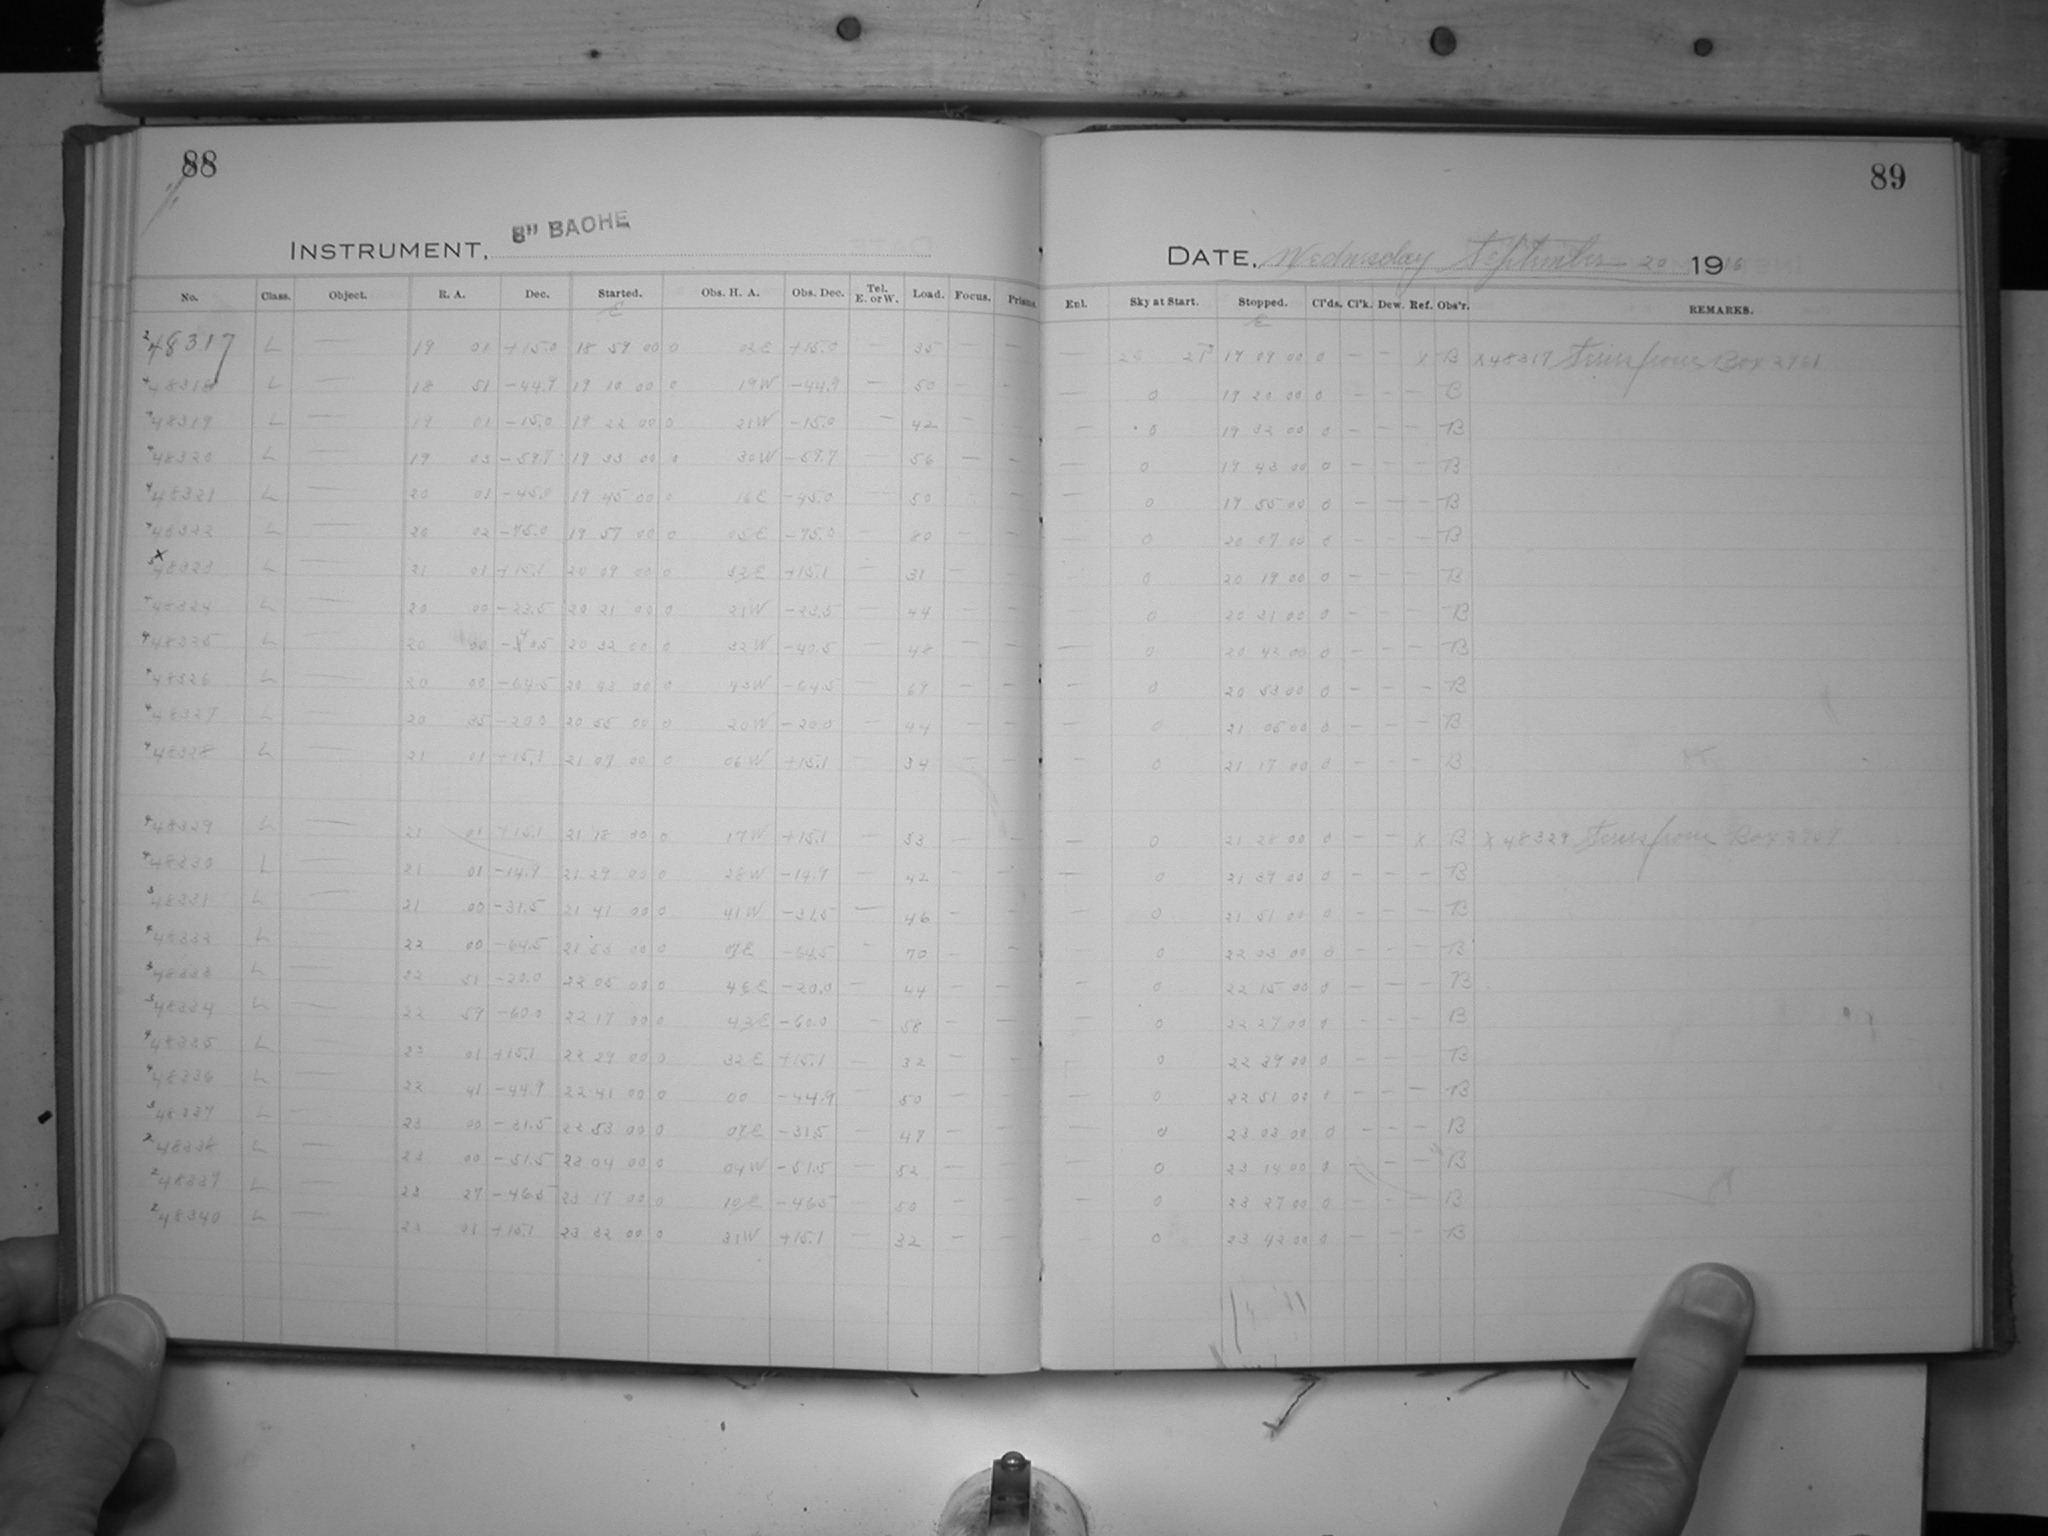 88
INSTRUMENT, 8" BACHE
No. Class. Object. R. A. Dec. Started. Obs. H. A. Obs. Dec. Tel. E. or W. Load. Focus. Prisms.
48317 L — 19 01 +15.0 18 59 00 0 03E +15.0 35
48318 L — 18 51 -44.9 19 10 00 0 19W -44.9 — 50 — —
48319 L — 19 01 -15.0 19 22 00 0 21W -15.0 — 42 — —
48320 L — 19 03 -59.7 19 33 00 0 30W -59.7 — 56 — —
48321 L — 20 01 -45.0 19 45 00 0 16E -45.0 — 50 — —
48322 L — 20 02 -75.0 19 57 00 0 05E -75.0 — 80 — —
48323 L — 21 01 +15.1 20 09 00 0 52E +15.1 — 31 — —
48324 L — 20 00 -23.5 20 21 00 0 21W -23.5 — 44 — —
48325 L — 20 00 -40.5 20 32 00 0 32W -40.5 — 48 — —
48326 L — 20 00 -64.5 20 43 00 0 43W -64.5 — 69 — —
48327 L — 20 35 -20.0 20 55 00 0 20W -20.0 — 44 — —
48328 L — 21 01 +15.1 21 07 00 0 06W +15.1 — 34 — —
48329 L — 21 01 +15.1 21 18 00 0 17W +15.1 — 33 — —
48330 L — 21 01 -14.9 21 29 00 0 28W -14.9 — 42 — —
48331 L — 21 00 -31.5 21 41 00 0 41W -31.5 — 46 — —
48332 L — 22 00 -64.5 21 53 00 0 07E -64.5 — 70 — —
48333 L — 22 51 -20.0 22 05 00 0 46E -20.0 — 44 — —
48334 L — 22 59 -60.0 22 17 00 0 42E -60.0 — 58 — —
48335 L — 23 01 +15.1 22 29 00 0 32E +15.1 — 32 — —
48336 L — 22 41 -44.9 22 41 00 0 00 -44.9 — 50 — —
48337 L — 23 00 -31.5 22 53 00 0 07E -31.5 — 47 — —
48338 L — 23 00 -51.5 23 04 00 0 04W -51.5 — 52 — —
48339 L — 23 27 -46.5 23 17 00 0 10E -46.5 — 50 — —
48340 L — 23 01 +15.1 23 32 00 0 31W +15.1 — 32 — —
89
DATE, Wednesday September 20 1916
Enl. Sky at Start. Stopped. Cl'ds. Cl'k. Dew. Ref. Obs'r. REMARKS.
— 19 09 00 0 — — x B x 48317 from Box 2961
— 0 19 20 00 0 — — — B
— 0 19 32 00 0 — — — B
— 0 19 43 00 0 — — — B
— 0 19 55 00 0 — — — B
— 0 20 07 00 0 — — — B
— 0 20 19 00 0 — — — B
— 0 20 31 00 0 — — — B
— 0 20 42 00 0 — — — B
— 0 20 53 00 0 — — — B
— 0 21 05 00 0 — — — B
— 0 21 17 00 0 — — — B
— 0 21 28 00 0 — — x B x 48329 from Box
— 0 21 39 00 0 — — — B
— 0 21 51 00 0 — — — B
— 0 22 03 00 0 — — — B
— 0 22 15 00 0 — — — B
— 0 22 27 00 0 — — — B
— 0 22 39 00 0 — — — B
— 0 22 51 00 0 — — — B
— 0 23 03 00 0 — — — B
— 0 23 14 00 0 — — — B
— 0 23 27 00 0 — — — B
— 0 23 42 00 0 — — — B